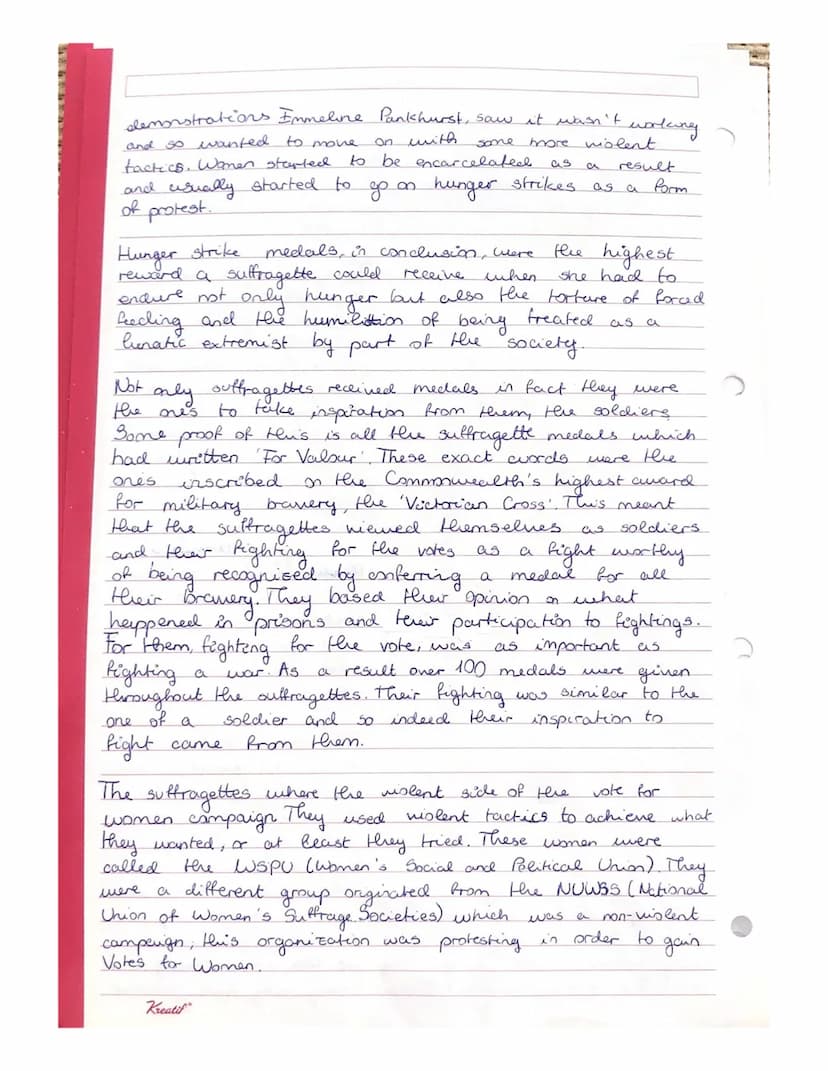 demonstrations Emmeline Pankhurst, saw it wasn't working
and so wanted to move on with some more violent
tactics. Women started to be encarcelated as a result
and usually started to go on hunger strikes as a form
of protest.
Hunger strike medals, in conclusion, were the highest
reward a suffragette could receive when she had to
endure not only hunger but also the torture of forced
feeding and the of being treated as a
lunatic extremist by part of the society.
Not only suffragettes received medals in fact they were
the ones to take inspiration from them, the soldiers.
Some proof of this is all the suffragette medals which
had written 'For Valour'. These exact words were the
ones inscribed on the Commonwealth's highest award
for military bravery, the 'Victorian Cross'. This meant
that the suffragettes viewed themselves as soldiers
and their fighting for the votes as a fight worthy
of being recognised by conferring a medal for all
their bravery. They based their opinion on what
happened in prisons and their participation to fightings.
For them, fighting for the vote, was as important as
fighting a war. As a result over 100 medals were given
throughout the suffragettes. Their fighting was similar to the
one of a soldier and so indeed their inspiration to
fight came from them.
The suffragettes where the violent side of the vote for
women campaign. They used violent tactics to achieve what
they wanted, or at least they tried. These women were
called the WSPU (Women's Social and Political Union). They
were a different group originated from the NUWSS (National
Union of Women's Suffrage Societies) which was a non-violent
campaign, this organization was protesting in order to gain
Votes for Women.
Kreatif